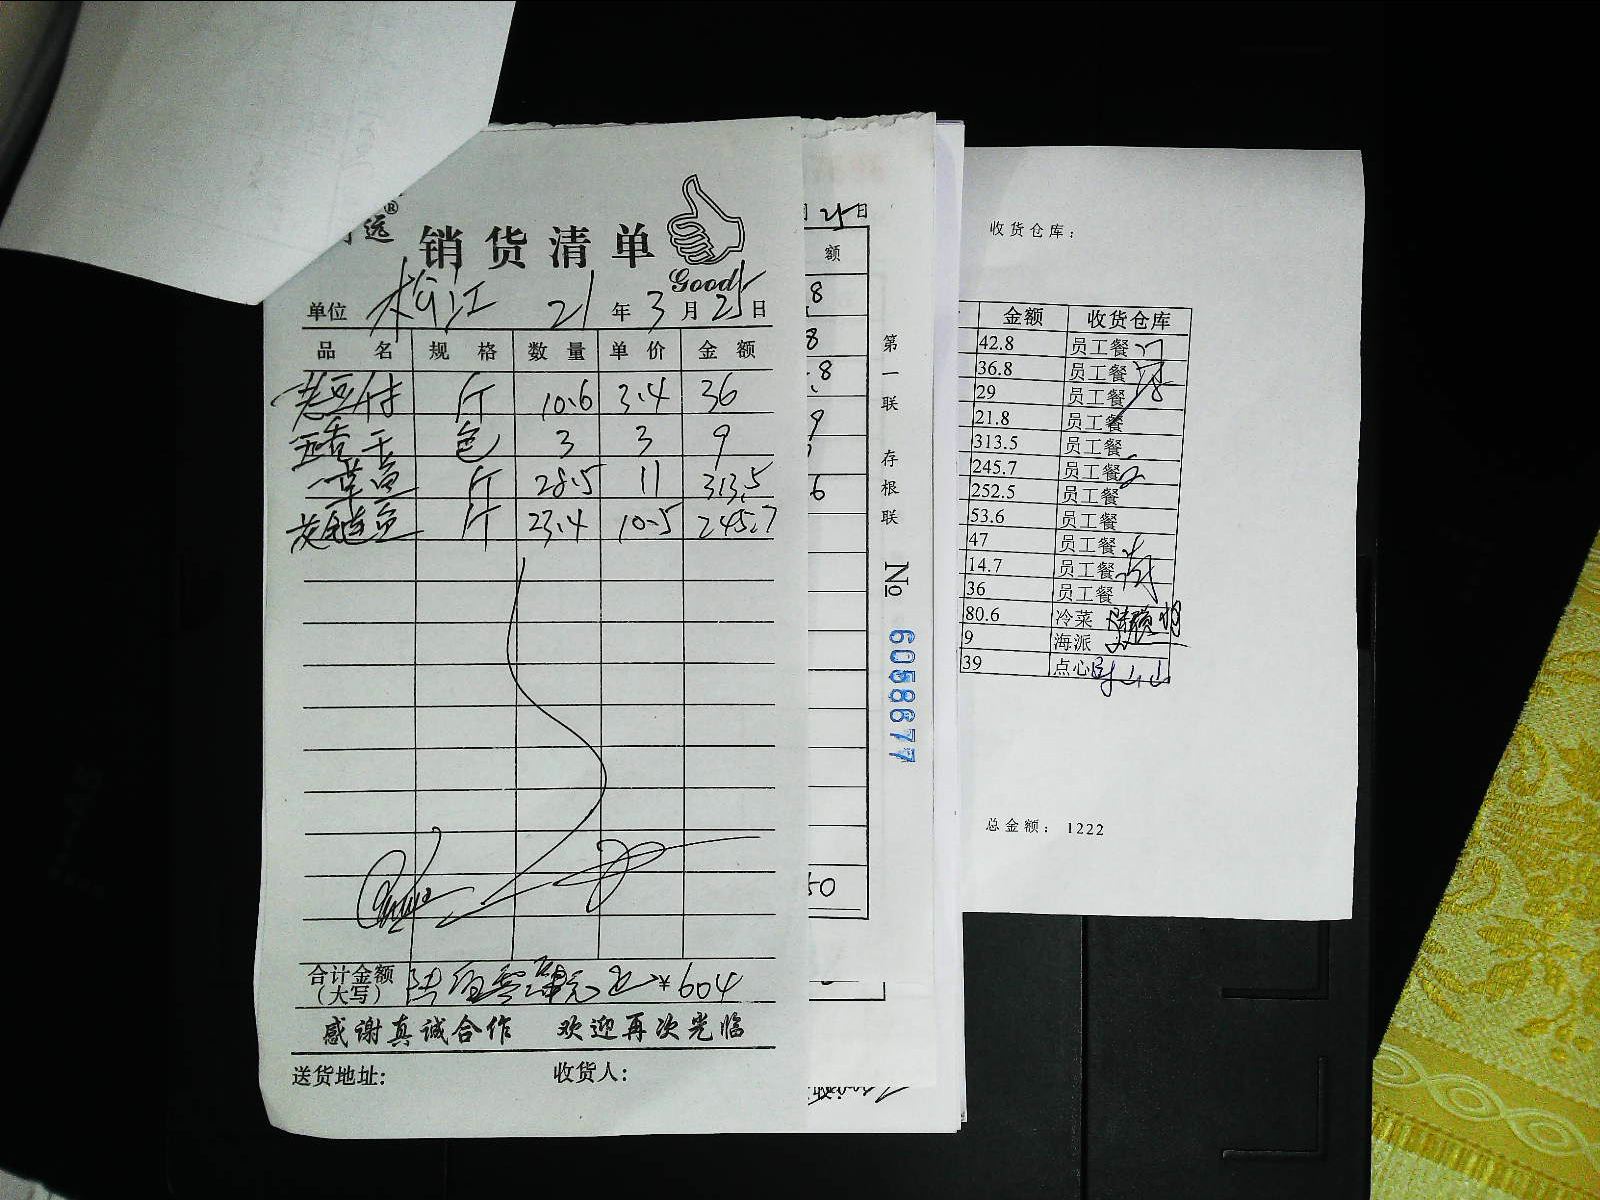 远®
销货清单
Good
单位 松江 21年3月25日
品名 规格 数量 单价 金额
老豆付 斤 10.6 3.4 36
五香干 包 3 3 9
草鱼 斤 28.5 11 313.5
花鲢鱼 斤 23.4 10.5 245.7
合计金额
(大写) 陆佰零肆元 ¥604
感谢真诚合作 欢迎再次光临
送货地址: 收货人:
25日
额
8
8
.8
9
6
50
第一联 存根联
№ 6058677
收货仓库:
金额 收货仓库
42.8 员工餐
36.8 员工餐
29 员工餐
21.8 员工餐
313.5 员工餐
245.7 员工餐
252.5 员工餐
53.6 员工餐
47 员工餐
14.7 员工餐
36 员工餐
80.6 冷菜
9 海派
39 点心
总金额: 1222